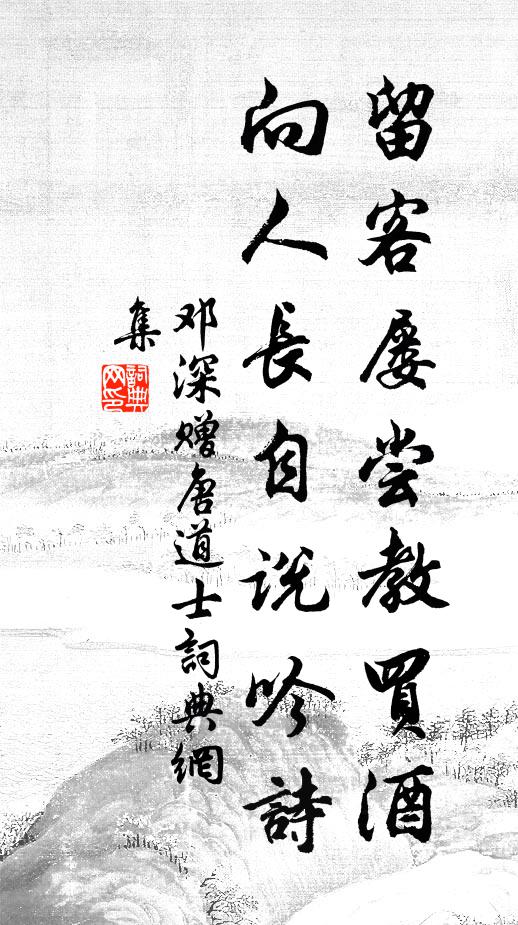 留客屡尝教買酒
向人長自説吟詩
邓深赠唐道士詞典網
集
詞典
网印